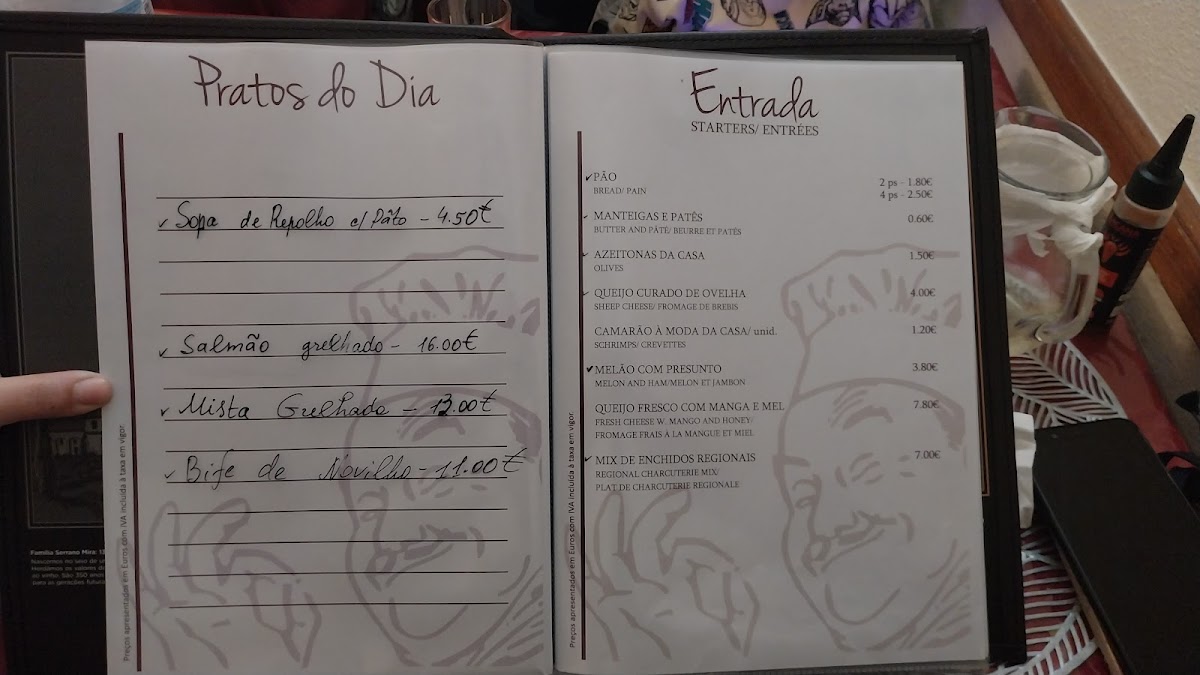 Pratos do Dia
✓ Sopa de Repolho c/ Pâto - 4.50€
✓ Salmão grelhado - 16.00€
✓ Mista Grelhado - 13.00€
✓ Bife de Novilho - 11.00€
Preços apresentados em Euros com IVA incluída à taxa em vigor.
Família Serrano Mira: 13
Nascemos no seio de u
Herdámos os valores d
ao vinho. São 350 anos
para as gerações futura
Entrada
STARTERS/ ENTRÉES
✓PÃO
BREAD/ PAIN
2 ps - 1.80€
4 ps - 2.50€
✓ MANTEIGAS E PATÊS 0.60€
BUTTER AND PÂTÉ/ BEURRE ET PATÉS
✓ AZEITONAS DA CASA 1.50€
OLIVES
✓ QUEIJO CURADO DE OVELHA 4.00€
SHEEP CHEESE/ FROMAGE DE BREBIS
CAMARÃO À MODA DA CASA/ unid. 1.20€
SCHRIMPS/ CREVETTES
✓ MELÃO COM PRESUNTO 3.80€
MELON AND HAM/MELON ET JAMBON
QUEIJO FRESCO COM MANGA E MEL 7.80€
FRESH CHEESE W. MANGO AND HONEY/
FROMAGE FRAIS À LA MANGUE ET MIEL
✓ MIX DE ENCHIDOS REGIONAIS 7.00€
REGIONAL CHARCUTERIE MIX/
PLAT DE CHARCUTERIE REGIONALE
Preços apresentados em Euros com IVA incluída à taxa em vigor.